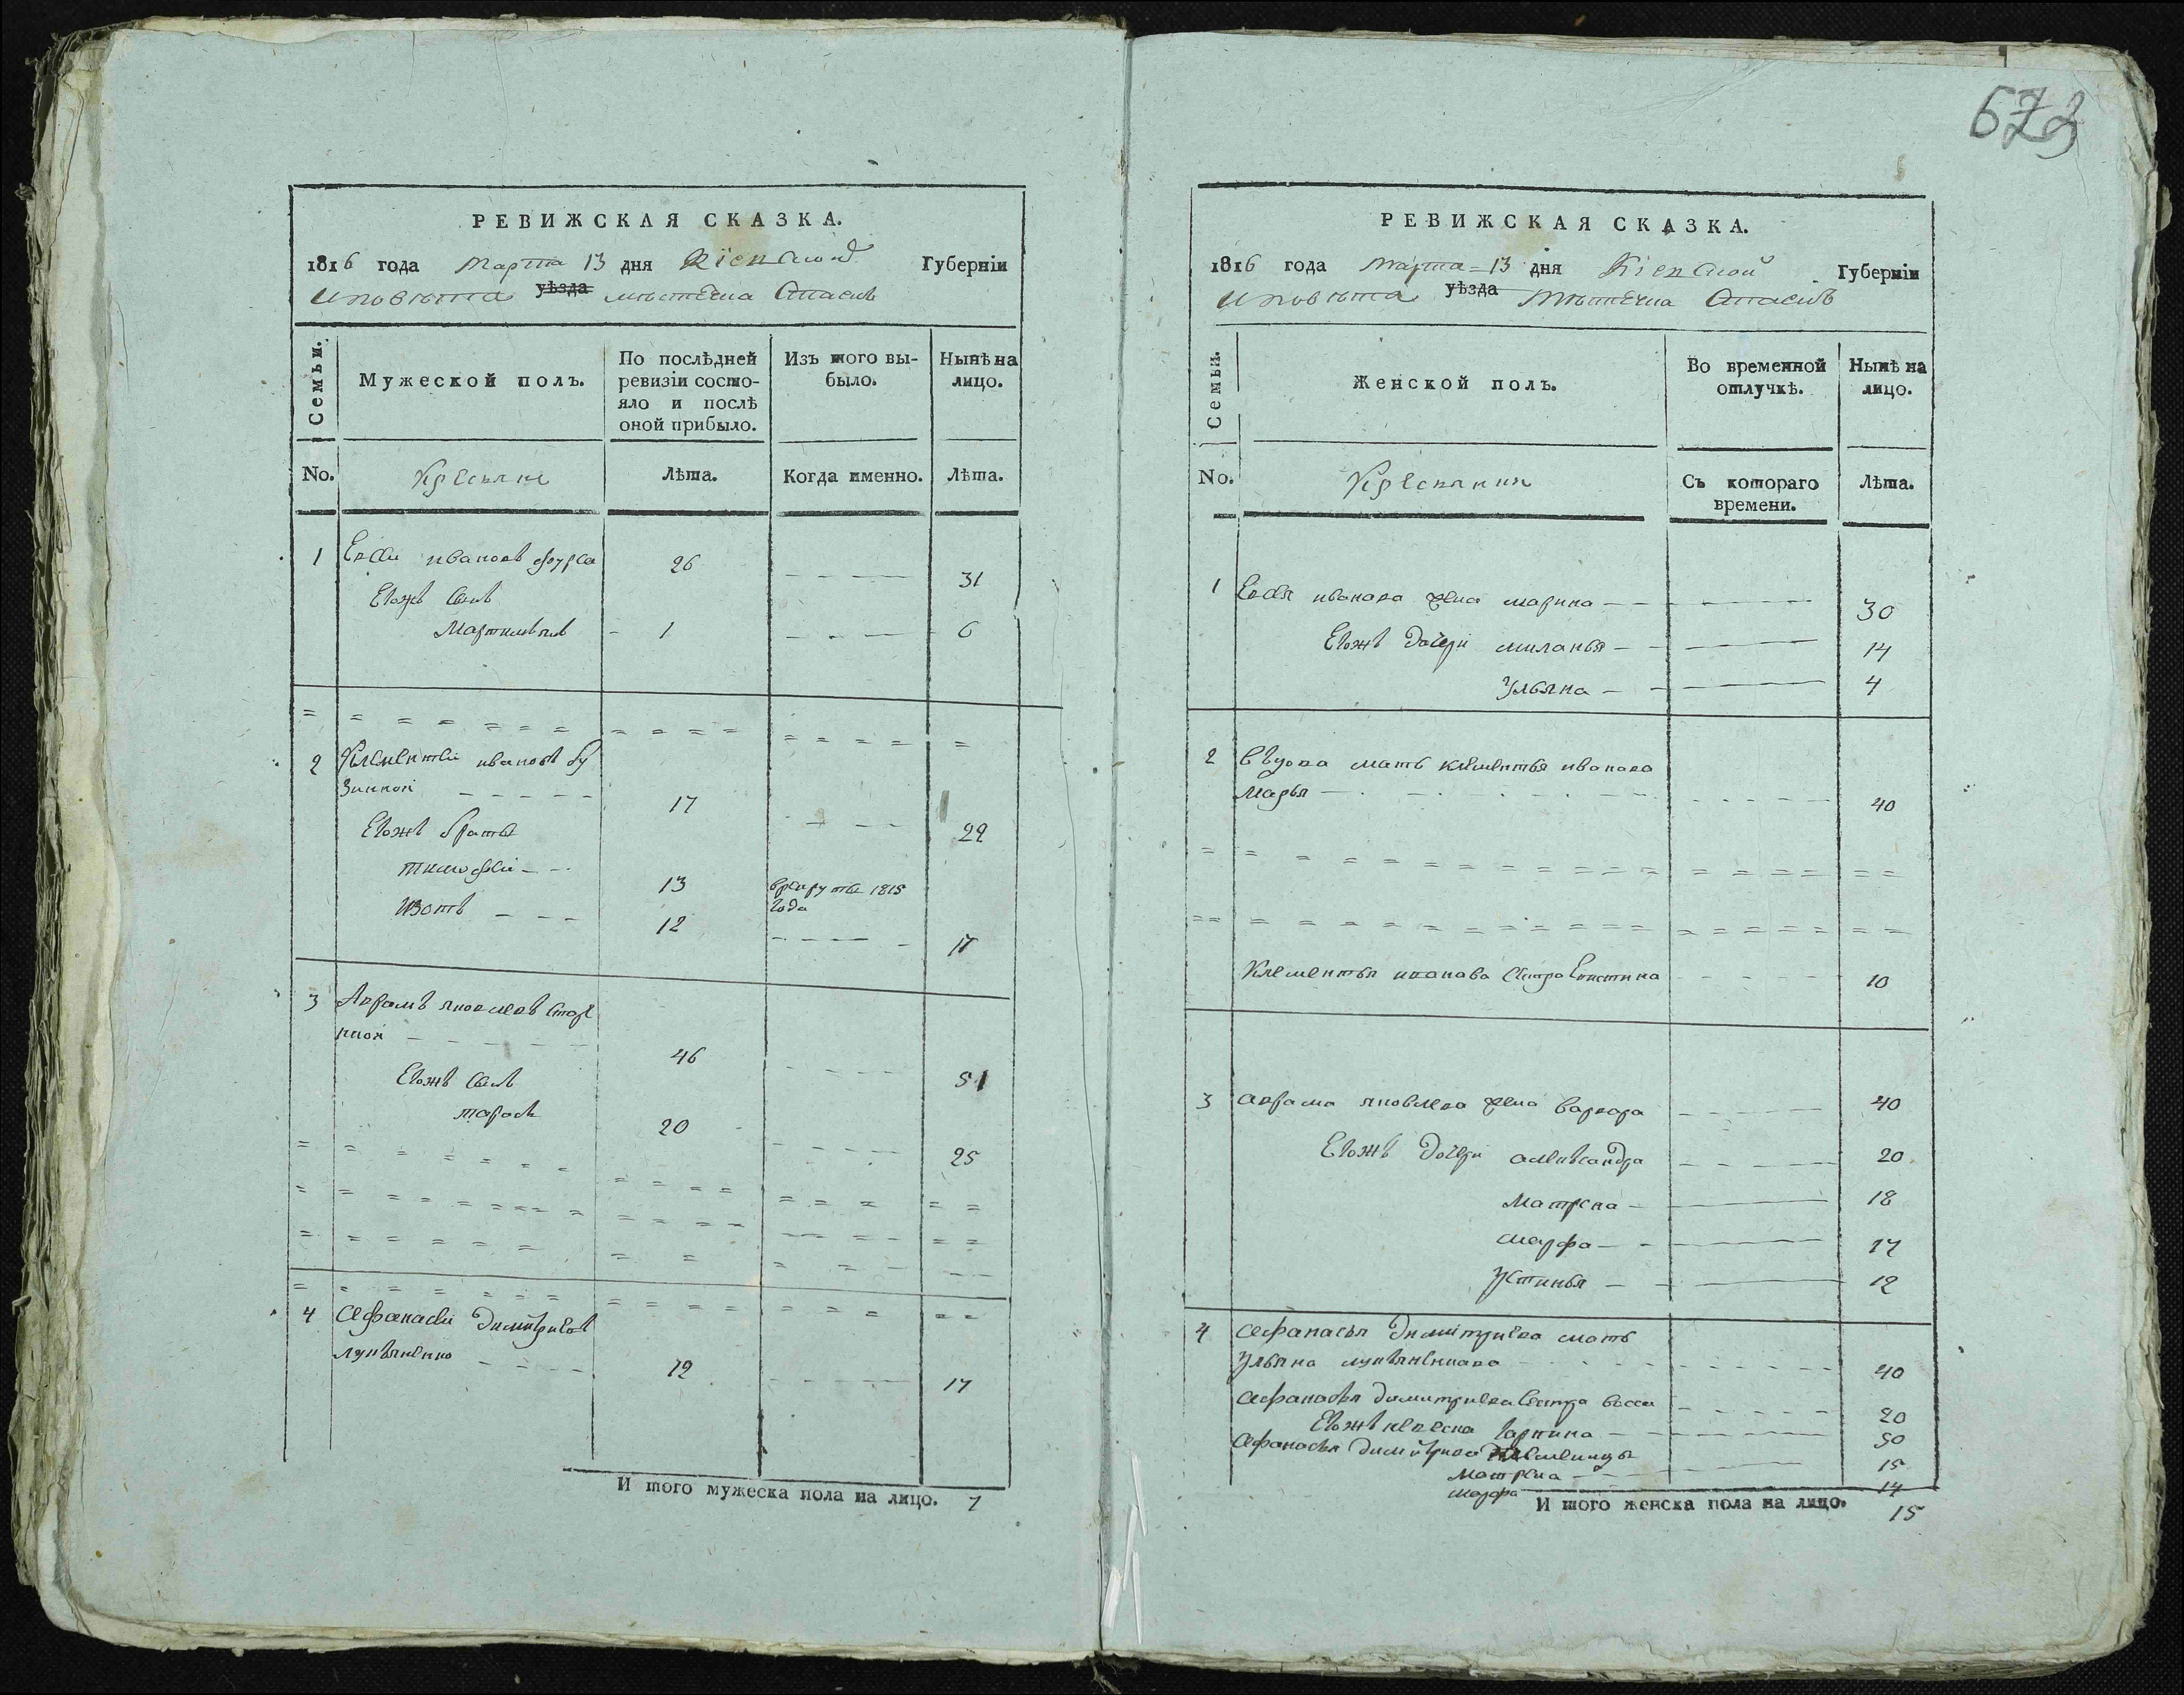 673
РЕВИЖСКАЯ СКАЗКА.
1816 года Марта 13 дня Кіевской Губерніи
и повѣта уѣзда мѣстечка
Семьи.
Мужеской полъ.
По послѣдней ревизіи состояло и послѣ оной прибыло.
Изъ того выбыло.
Нынѣ на лицо.
No.
Крестьяне
Лѣта.
Когда именно.
Лѣта.
1 Ивановъ Фурса 26 31
Евожъ Сынъ
1 6
2 Клементій ивановъ бу
зинной 17 22
Евожъ братья
тимофей 13 врекруты 1815 года
Изотъ 12 17
3 Аврамъ яковлевъ
46 51
Евожъ Сынъ
тарасъ 20 25
4 Афанасей Димитріевъ
лукъяненко 12 17
И того мужеска пола на лицо. 7
РЕВИЖСКАЯ СКАЗКА.
1816 года марта 13 дня Кіевской Губерніи
и повѣта уѣзда мѣстечка
Семьи.
Женской полъ.
Во временной отлучкѣ.
Нынѣ на лицо.
No.
Съ котораго времени.
Лѣта.
1 иванова жена марина 30
Евожъ дочери миланья 14
Ульяна 4
2 Вдова мать клементья иванова
Марья 40
Клементья иванова Сестра 10
3 аврама яковлева жена варвара 40
Евожъ дочери александра 20
Матрена 18
марфа 17
Устинья 12
4 Афанасья Димитріева мать
Ульяна лукъяненкова 40
Афанасья димитриева Сестра васса 20
Евожъ невеска 30
Афанасья Димитриева
Матрена 15
марфа 14
И того женска пола на лицо. 15